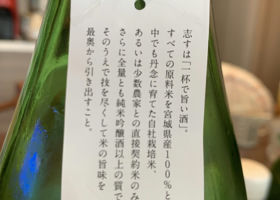 志すは「一杯で旨い酒」。
すべての原料米を宮城県産100%と
中でも丹念に育てた自社栽培米、
あるいは少数農家との直接契約米のみ
さらに全量とも純米吟醸酒以上の質で
そのうえで技を尽くして米の旨味を
最奥から引き出すこと。